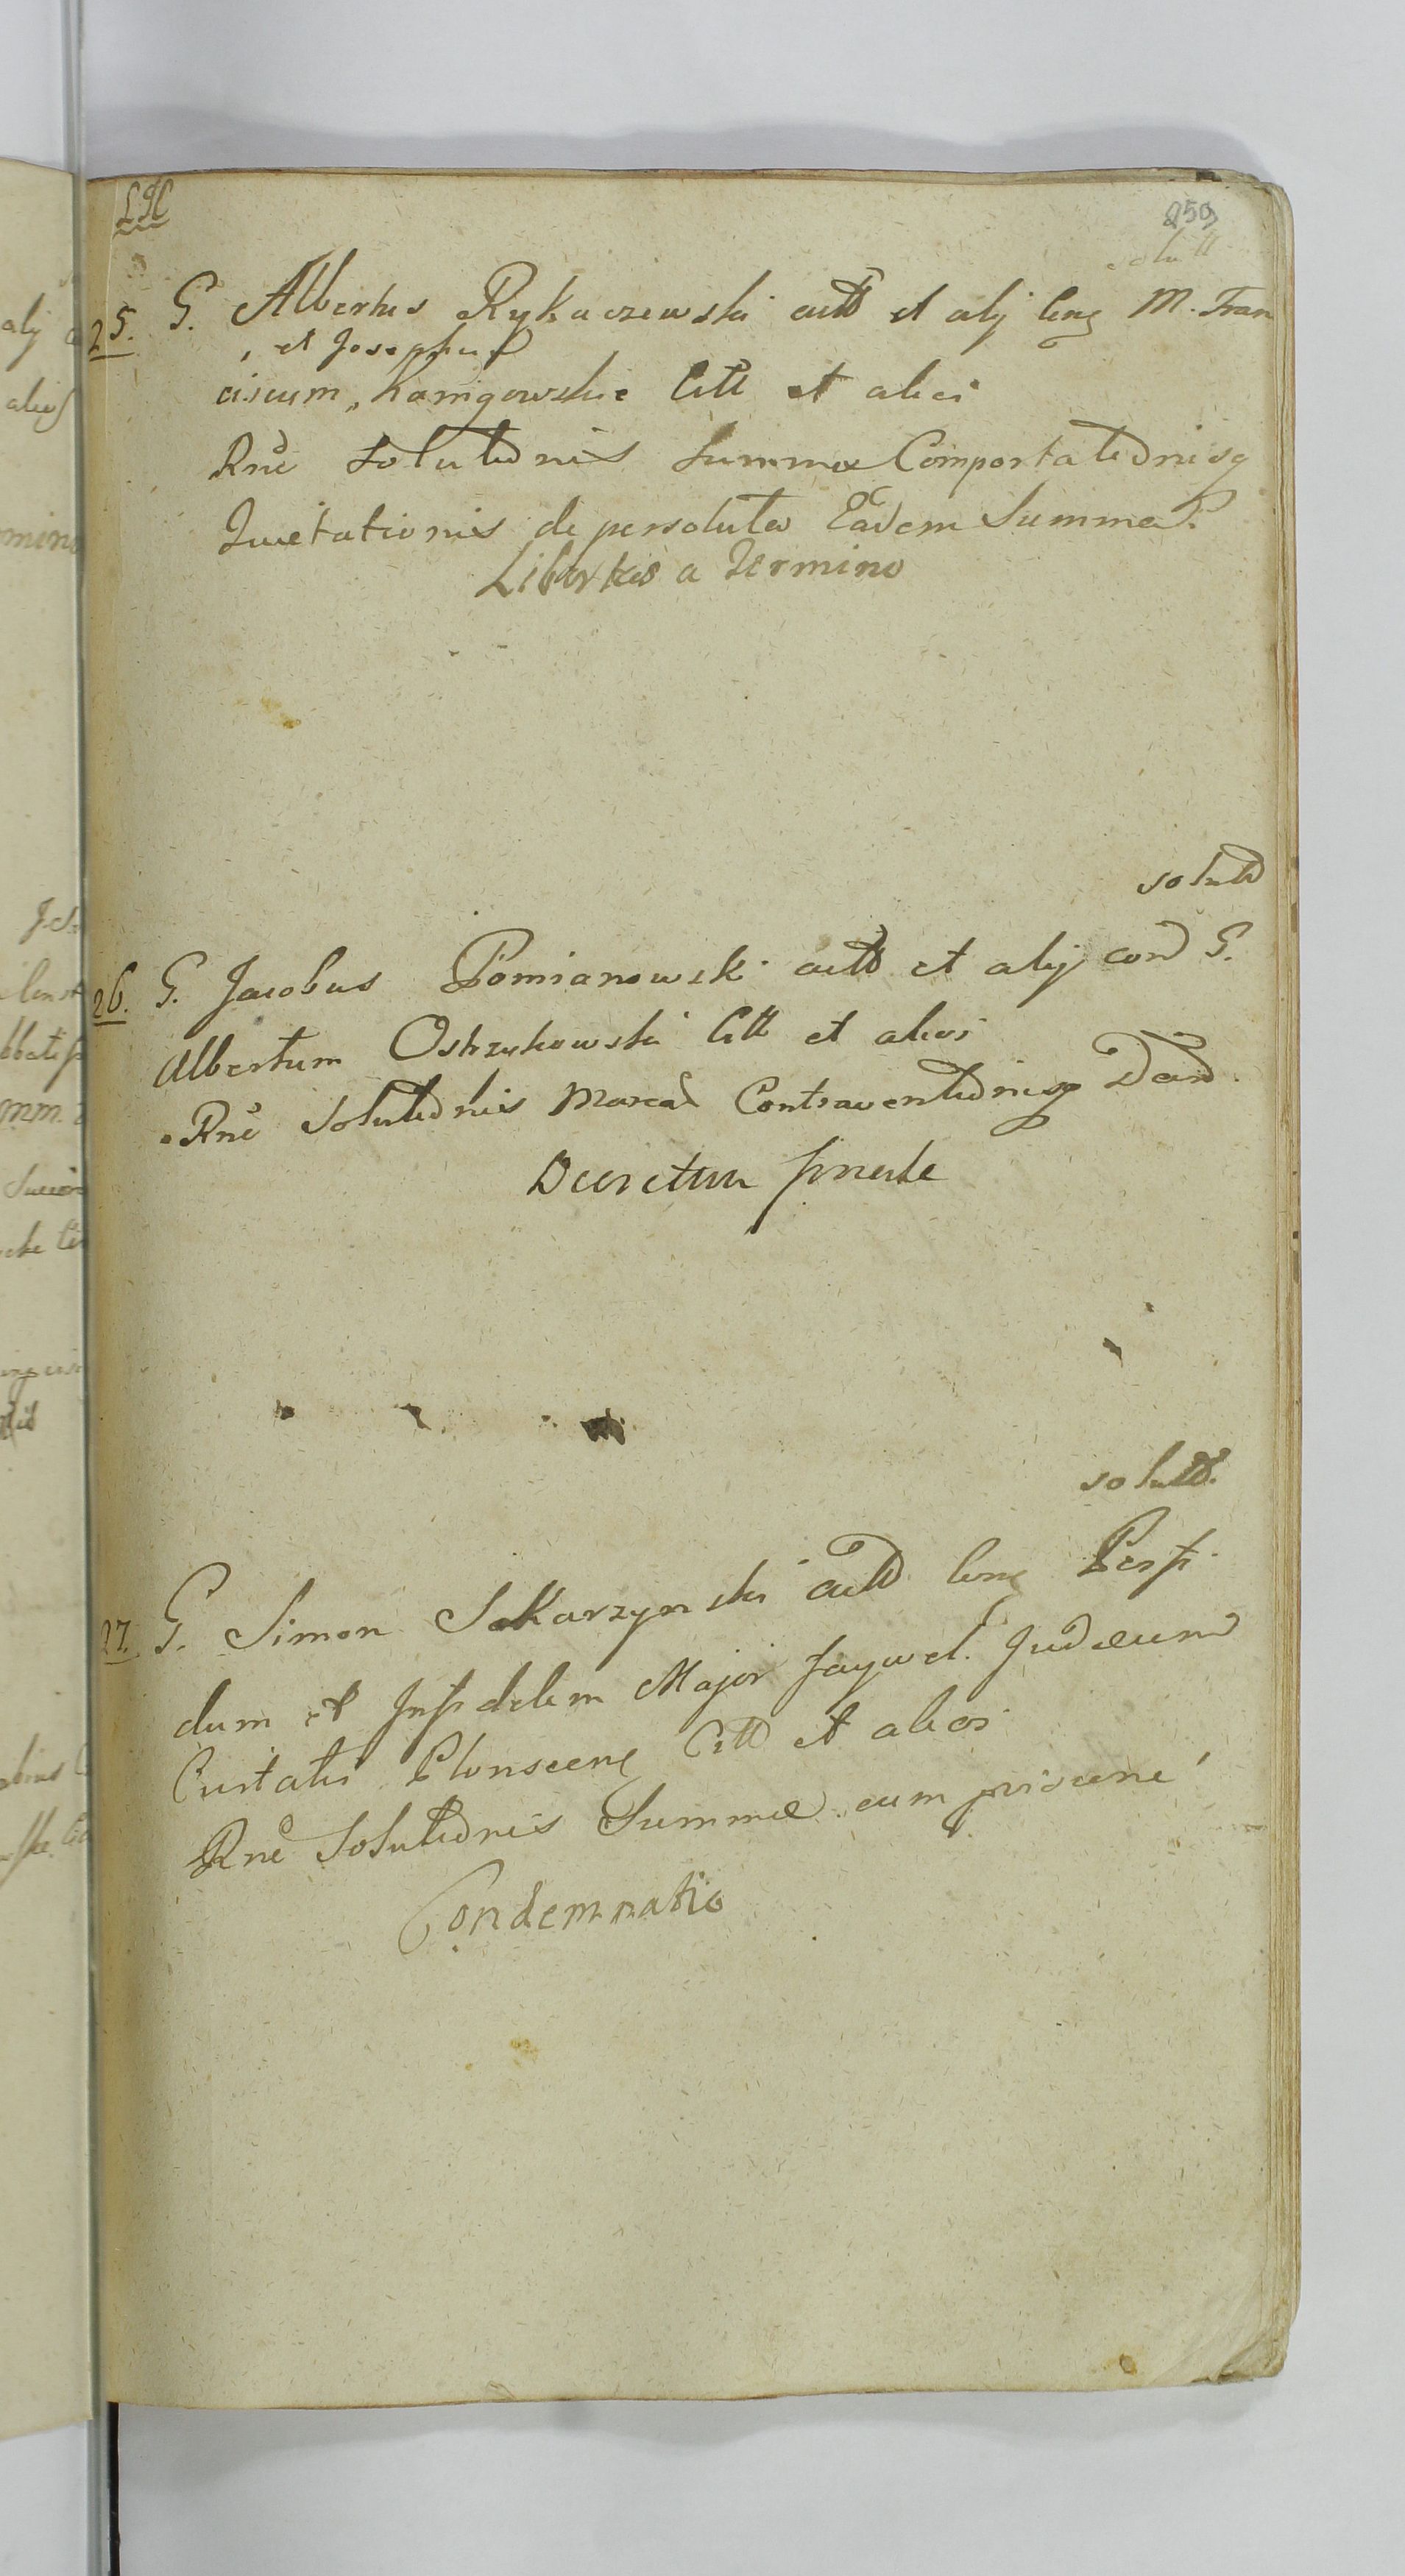 259
solutt
25. G. Albertus Rykaczewski actt et alij cong M. Fran
, et Josephum
ciscum „ Kanigowskie Citt et alios
Rne Solutionis Summæ Comportationisq
Quietationis de persoluta Eadem Summa.
Libertas a Termino
solutt
26. G. Jacobus Pomianowski actt et alij con G.
Albertum Ostrzykowski Citt et alios
Rne Solutionis Marcar Contraventionisq Dand
Decretum
solutt.
27. G. Simon Skarzynski actt cong Perfi
dum et Infidelem Major Faywel Judæum
Civitatis Plonscen Citt et alios
Rne Solutionis Summæ cum
Condemnatio